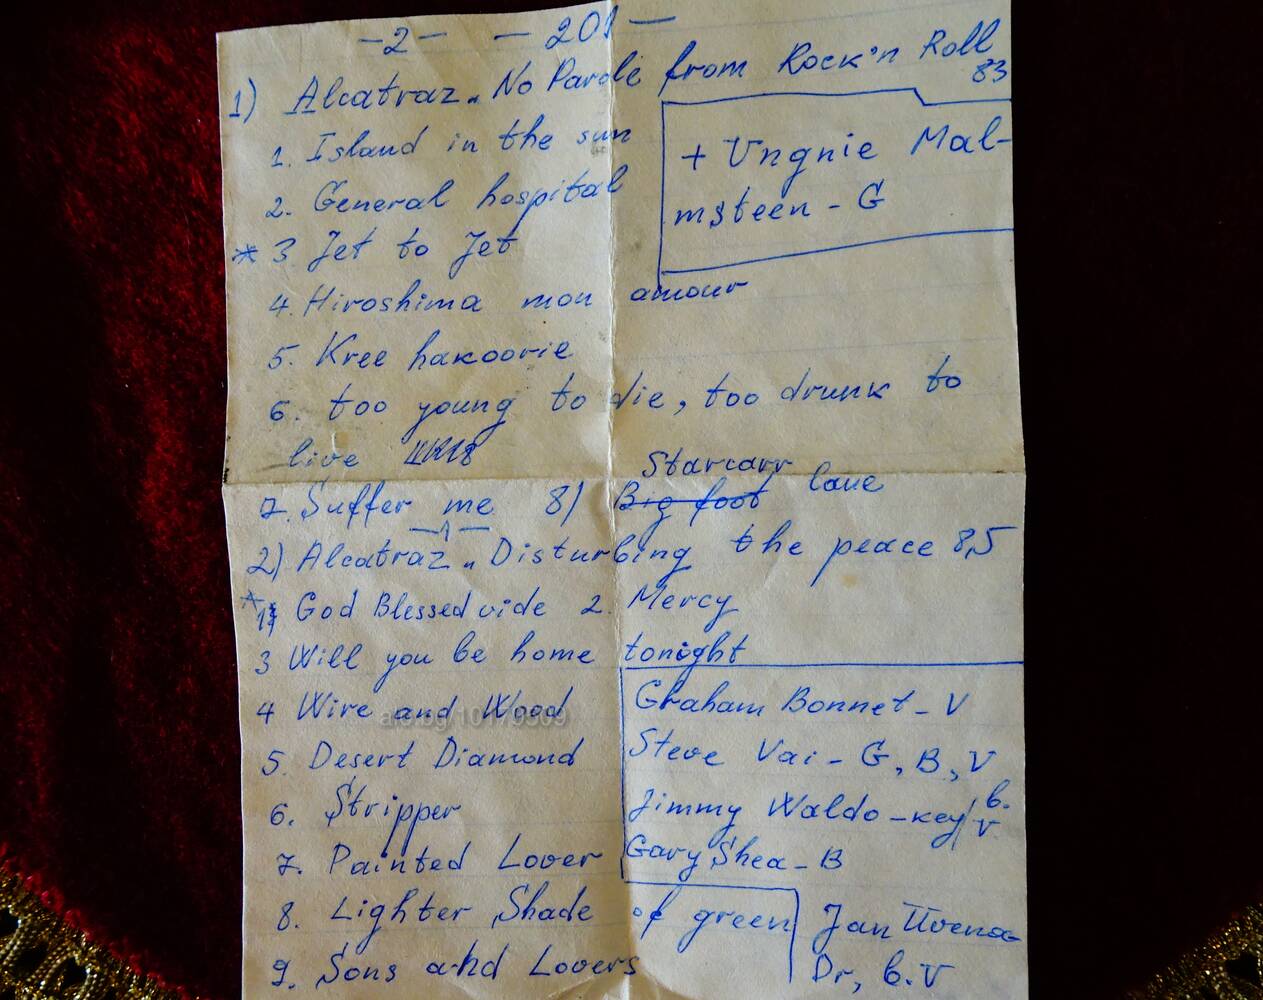 -2- - 201 -
1) Alcatraz „No Parole from Rock'n Roll
83
1. Island in the sun
+ Vngnie Mal-
msteen - G
2. General hospital
* 3 Jet to Jet
4. Hiroshima mon amour
5. Kree nakoorie
6. too young to die, too drunk to
live
7. Suffer me 8) Big foot Starcarr lane
-1-
2) Alcatraz „Disturbing the peace 85
* 1) God Blessed vide 2. Mercy
3 Will you be home tonight
4 Wire and Wood
Graham Bonnet - V
5. Desert Diamond
Steve Vai - G, B, V
6. Stripper
Jimmy Waldo - key/ b.v
7. Painted Lover
Gary Shea - B
8. Lighter Shade of green
Jan
9. Sons and Lovers
Dr, b.V